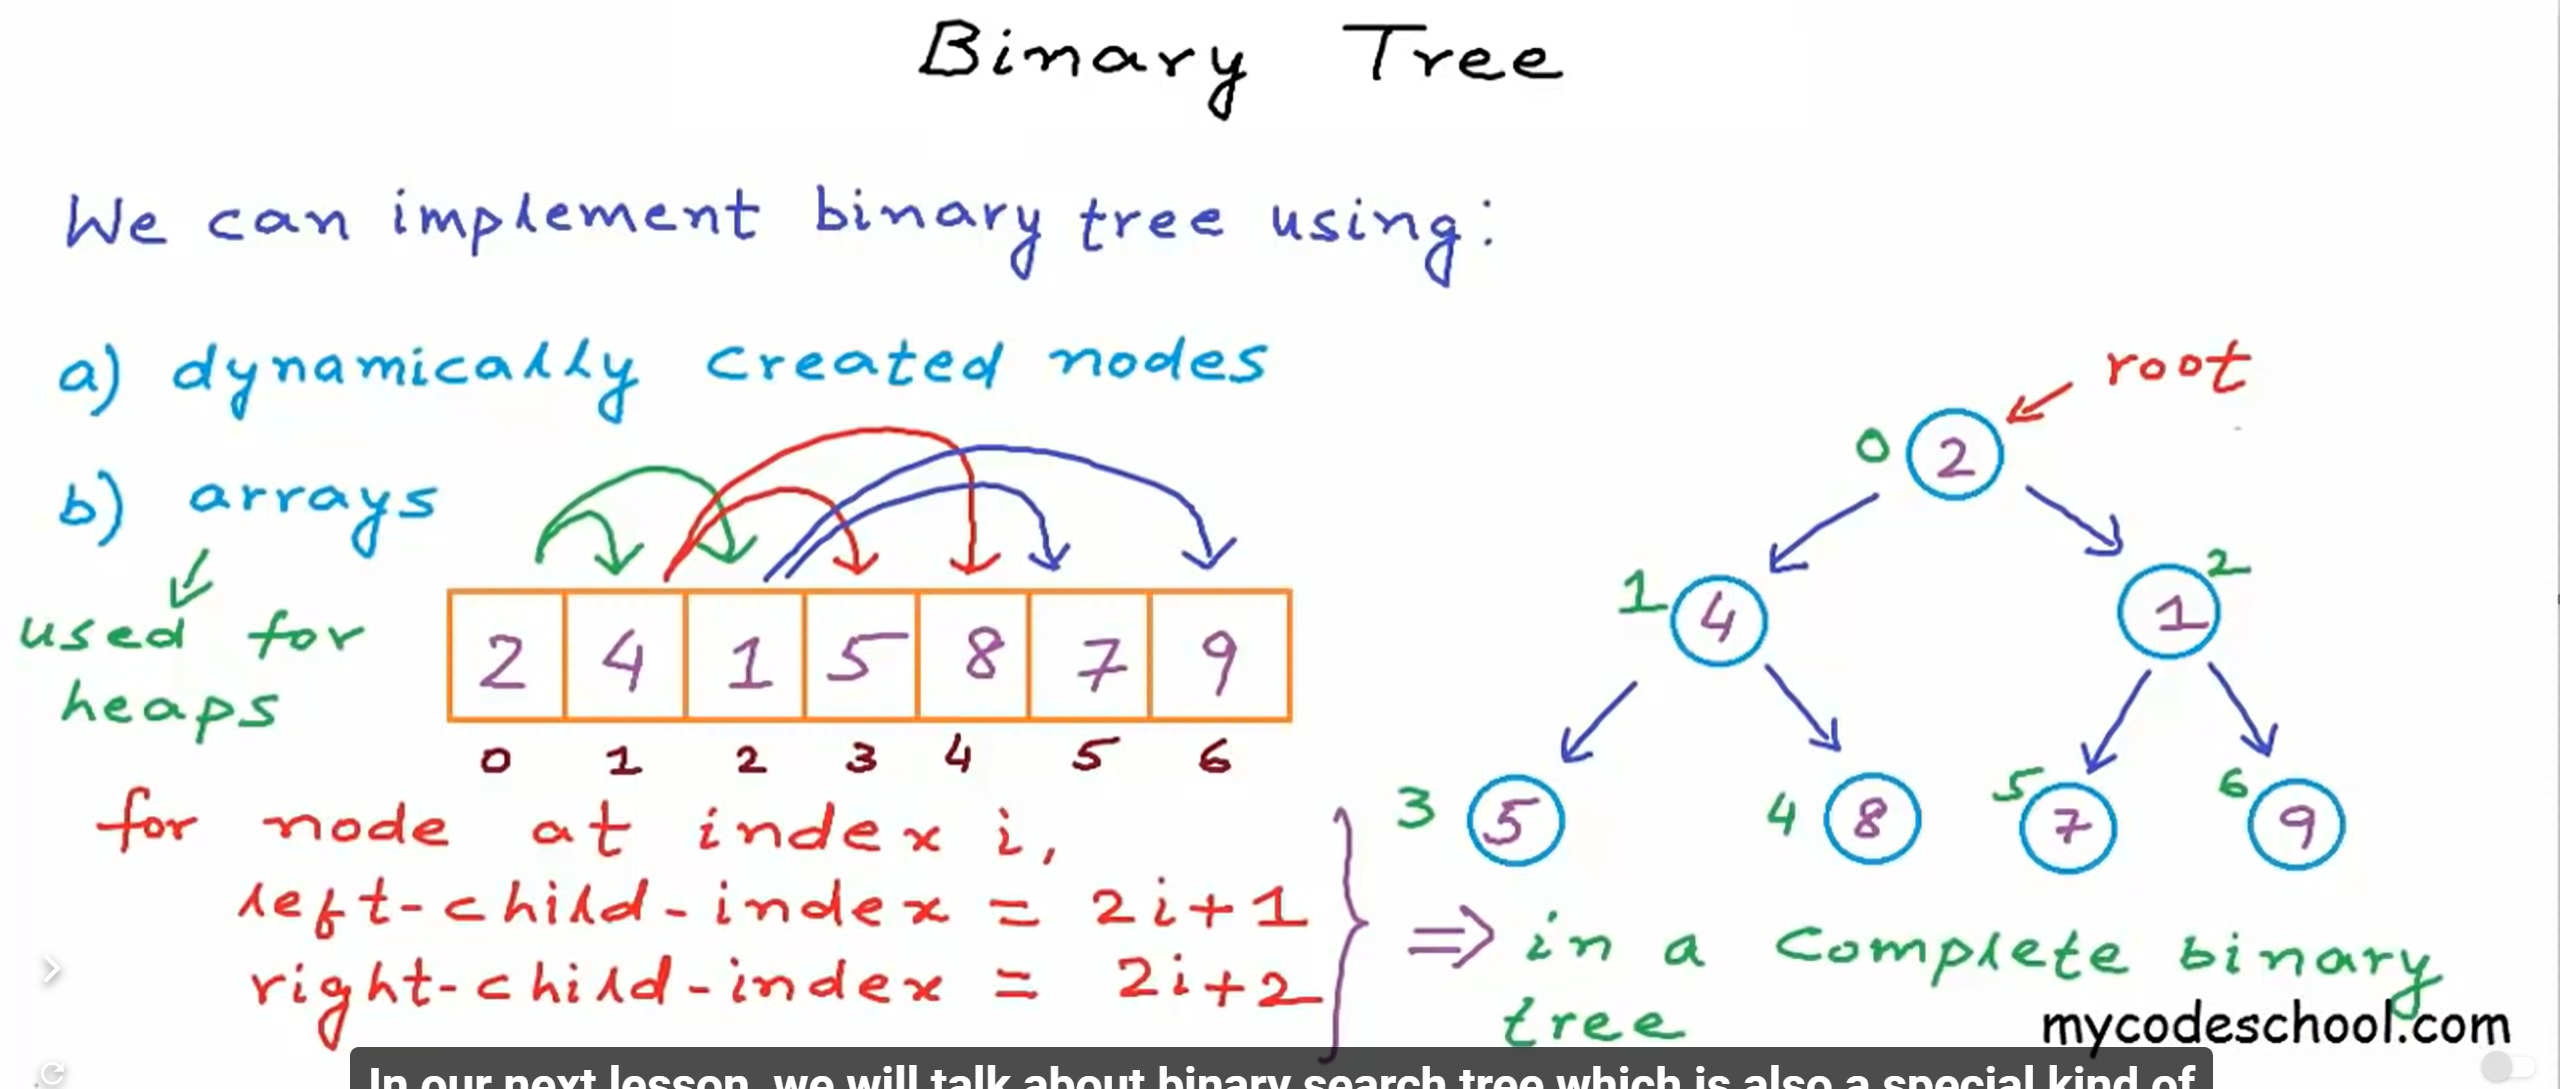 Binary Tree
We can implement binary tree using:
a) dynamically created nodes
b) arrays
used for
heaps
2 4 1 5 8 7 9
0 1 2 3 4 5 6
for node at index i,
left-child-index = 2i+1
right-child-index = 2i+2
root
0 2
1 4 1 2
3 5 4 8 5 7 6 9
⇒ in a complete binary
tree
mycodeschool.com
In our next lesson, we will talk about binary search tree which is also a special kind of